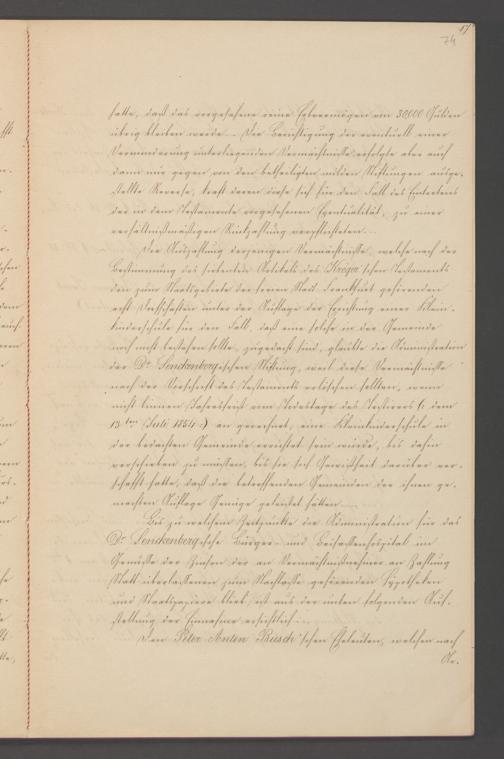 17
74
hatte, daß das vorgesehene reine Erbvermögen von 30000 Gulden
übrig bleiben werde. Die Berichtigung der eventuell einer
Verminderung unterliegenden Vermächtnisse erfolgte aber auch
dann nur gegen von den betheiligten milden Stiftungen ausge-
stellte Reverse, kraft deren diese sich für den Fall des Eintretens
der in dem Testamente vorgesehenen Eventualität, zu einer
verhältnißmäßigen Rückzahlung verpflichteten.
Die Auszahlung derjenigen Vermächtnisse, welche nach der
Bestimmung des siebenten Artikels des Krüger'schen Testaments
den zum Staatsgebiete der freien Stadt Frankfurt gehörenden
acht Dorfschaften unter der Auflage der Errichtung einer Klein-
kinderschule für den Fall, daß eine solche in der Gemeinde
noch nicht bestehen sollte, zugedacht sind, glaubte die Administration
der Dr. Senckenberg'schen Stiftung, weil diese Vermächtnisse
nach der Vorschrift des Testaments erlöschen sollten, wenn
nicht binnen Jahresfrist vom Todestage des Testirers (: dem
13ten Juli 1854 :) an gerechnet, eine Kleinkinderschule in
der bedachten Gemeinde errichtet sein würde, bis dahin
verschieben zu müssen, bis sie sich Gewißheit darüber ver-
schafft hatte, daß die betreffenden Gemeinden der ihnen ge-
machten Auflage Genüge geleistet hätten.
Bis zu welchem Zeitpunkte die Administration für das
Dr. Senckenberg'sche Bürger- und Beisassenhospital im
Genusse der Zinsen der an Vermächtnißnehmer an Zahlung
Statt überlassenen zum Nachlasse gehörenden Hypotheken
und Staatspapiere blieb, ist aus der unten folgenden Auf-
stellung der Einnahme ersichtlich.
Den Peter Anton Busch'schen Eheleuten, welchen nach
Nr.